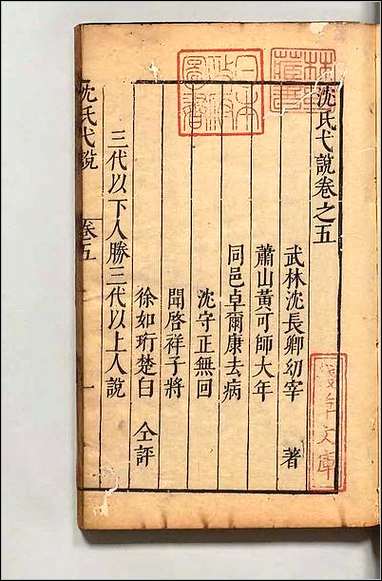 沈氏弋說卷之五
武林沈長卿幼宰 著
蕭山黃可師大年
同邑卓爾康去病
沈守正無回
聞啓祥子將
徐如珩楚白 仝評
三代以下人勝三代以上人說
沈氏弋說 卷五 一
林氏藏書
日本政府圖書
淺草文庫